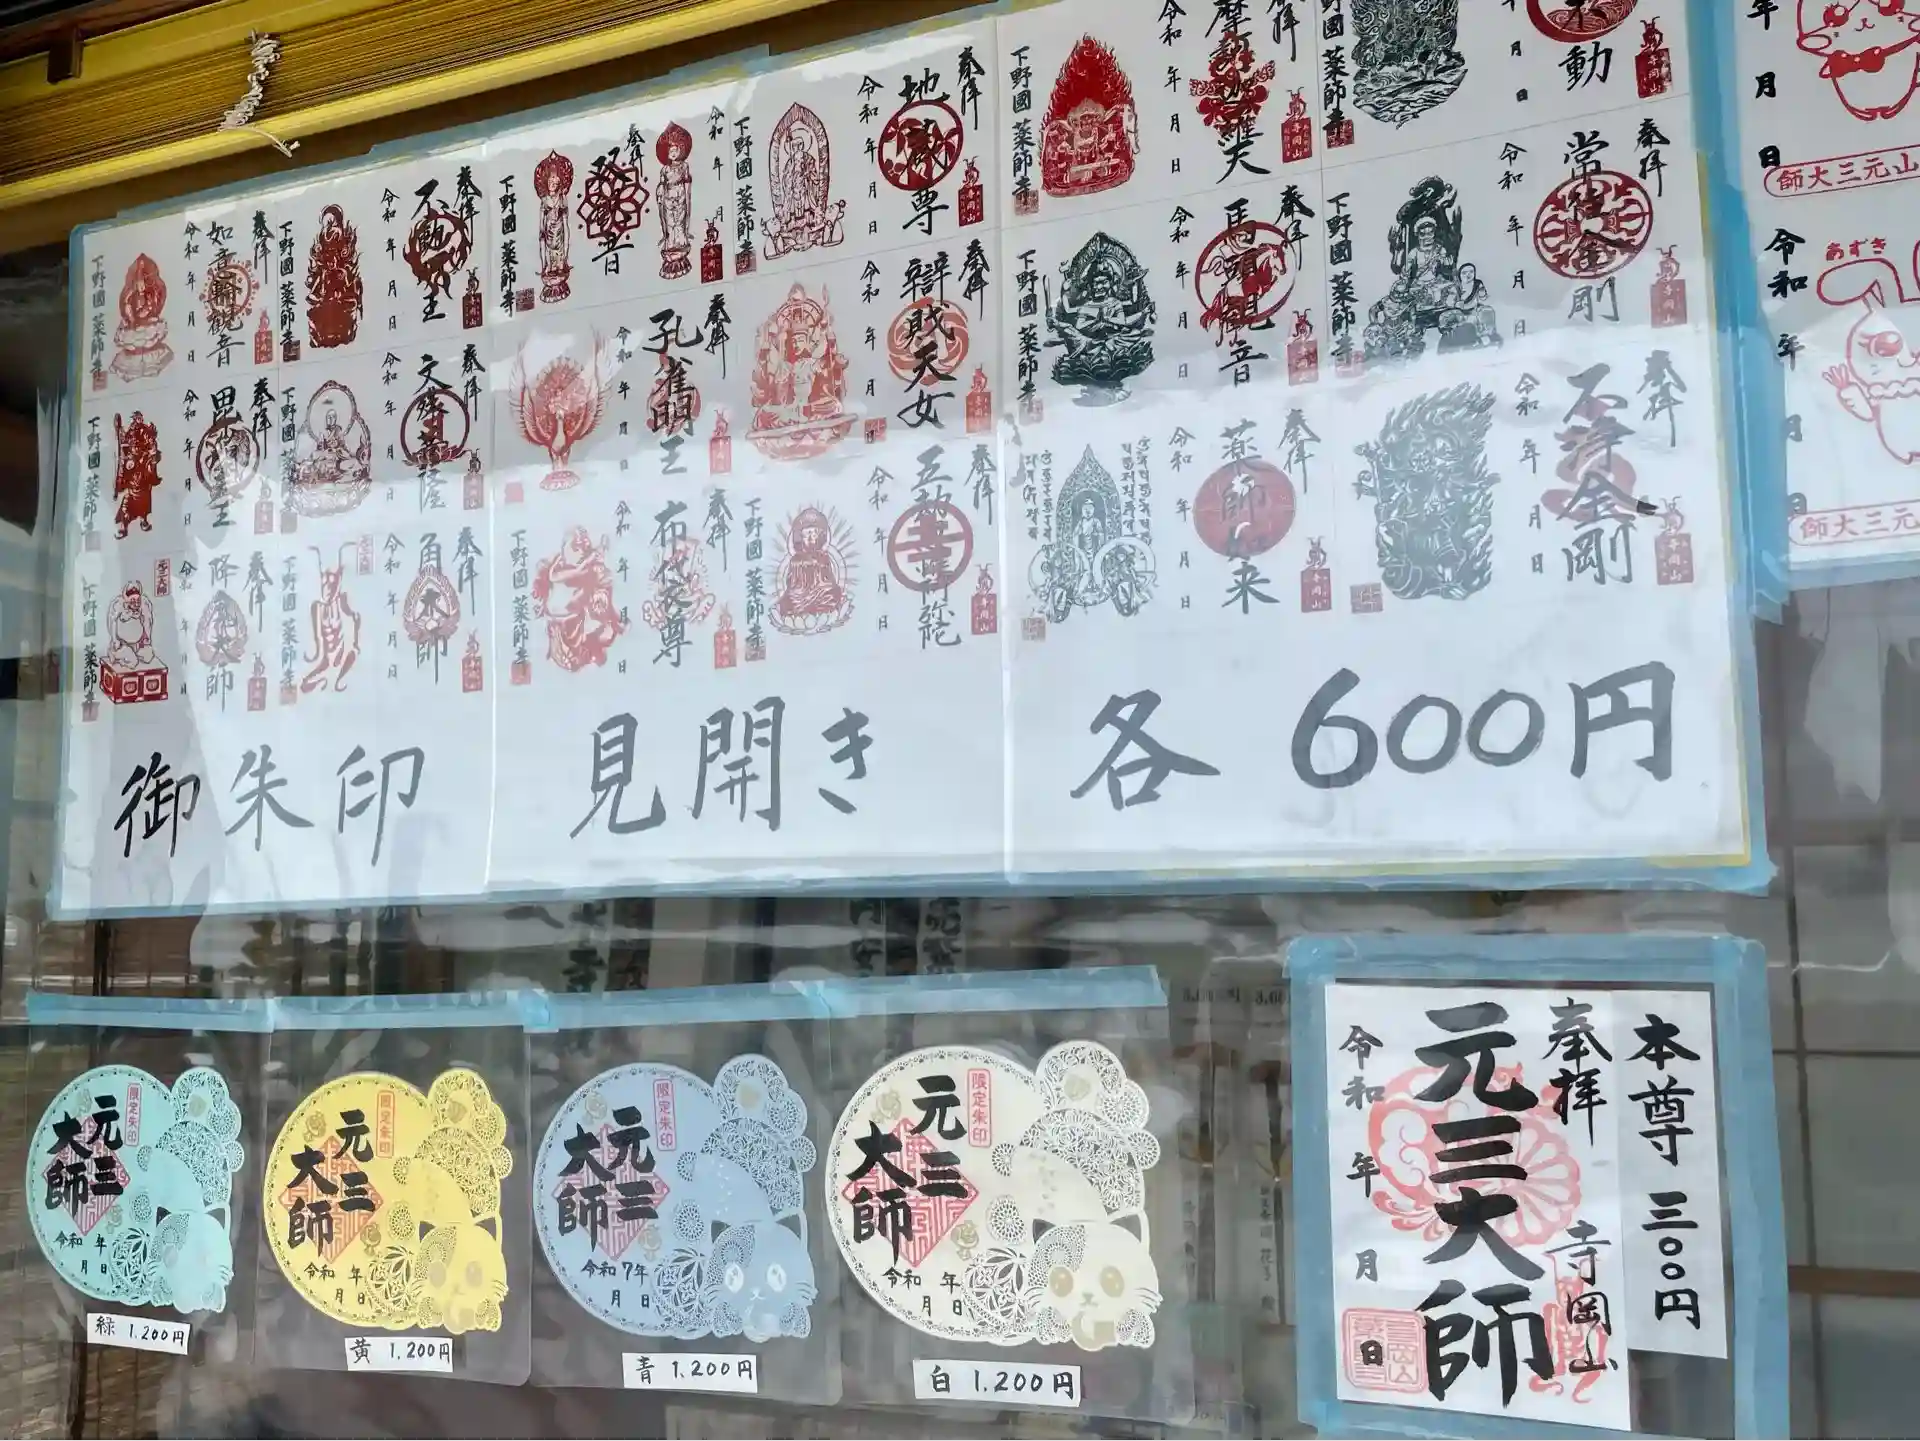 奉拝
如意輪観音
令和 年 月 日
下野國 薬師寺
奉拝
不動明王
令和 年 月 日
下野國 薬師寺
奉拝
令和 年 月
下野國 薬師寺
奉拝
地蔵尊
令和 年 月 日
下野國 薬師寺
奉拝
摩訶迦羅天
令和 年 月 日
下野國 薬師寺
動
月 日
野國 薬師寺
奉拝
毘沙門天王
令和 年 月 日
下野國 薬師寺
奉拝
文殊菩薩
令和 年 月 日
下野國 薬師寺
奉拝
孔雀明王
令和 年 月 日
奉拝
辯財天女
令和 年 月 日
奉拝
馬頭観音
令和 年 月 日
下野國 薬師寺
奉拝
金剛
令和 年 月 日
下野國 薬師寺
奉拝
降魔大師
令和 年 月 日
下野國 薬師寺
奉拝
角大師
令和 年 月 日
下野國 薬師寺
奉拝
布袋尊
令和 年 月 日
下野國 薬師寺
奉拝
令和 年 月 日
下野國 薬師寺
奉拝
薬師如来
令和 年 月 日
奉拝
不浄金剛
令和 年 月 日
寺岡山
年 月 日
師大三元山
あずき
令和 年 月 日
師大三元山
御朱印 見開き 各600円
限定朱印
元三大師
令和 年 月 日
緑 1,200円
限定朱印
元三大師
令和 年 月 日
黄 1,200円
限定朱印
元三大師
令和7年 月 日
青 1,200円
限定朱印
元三大師
令和 年 月 日
白 1,200円
本尊 三〇〇円
奉拝 寺岡山
元三大師
令和 年 月 日